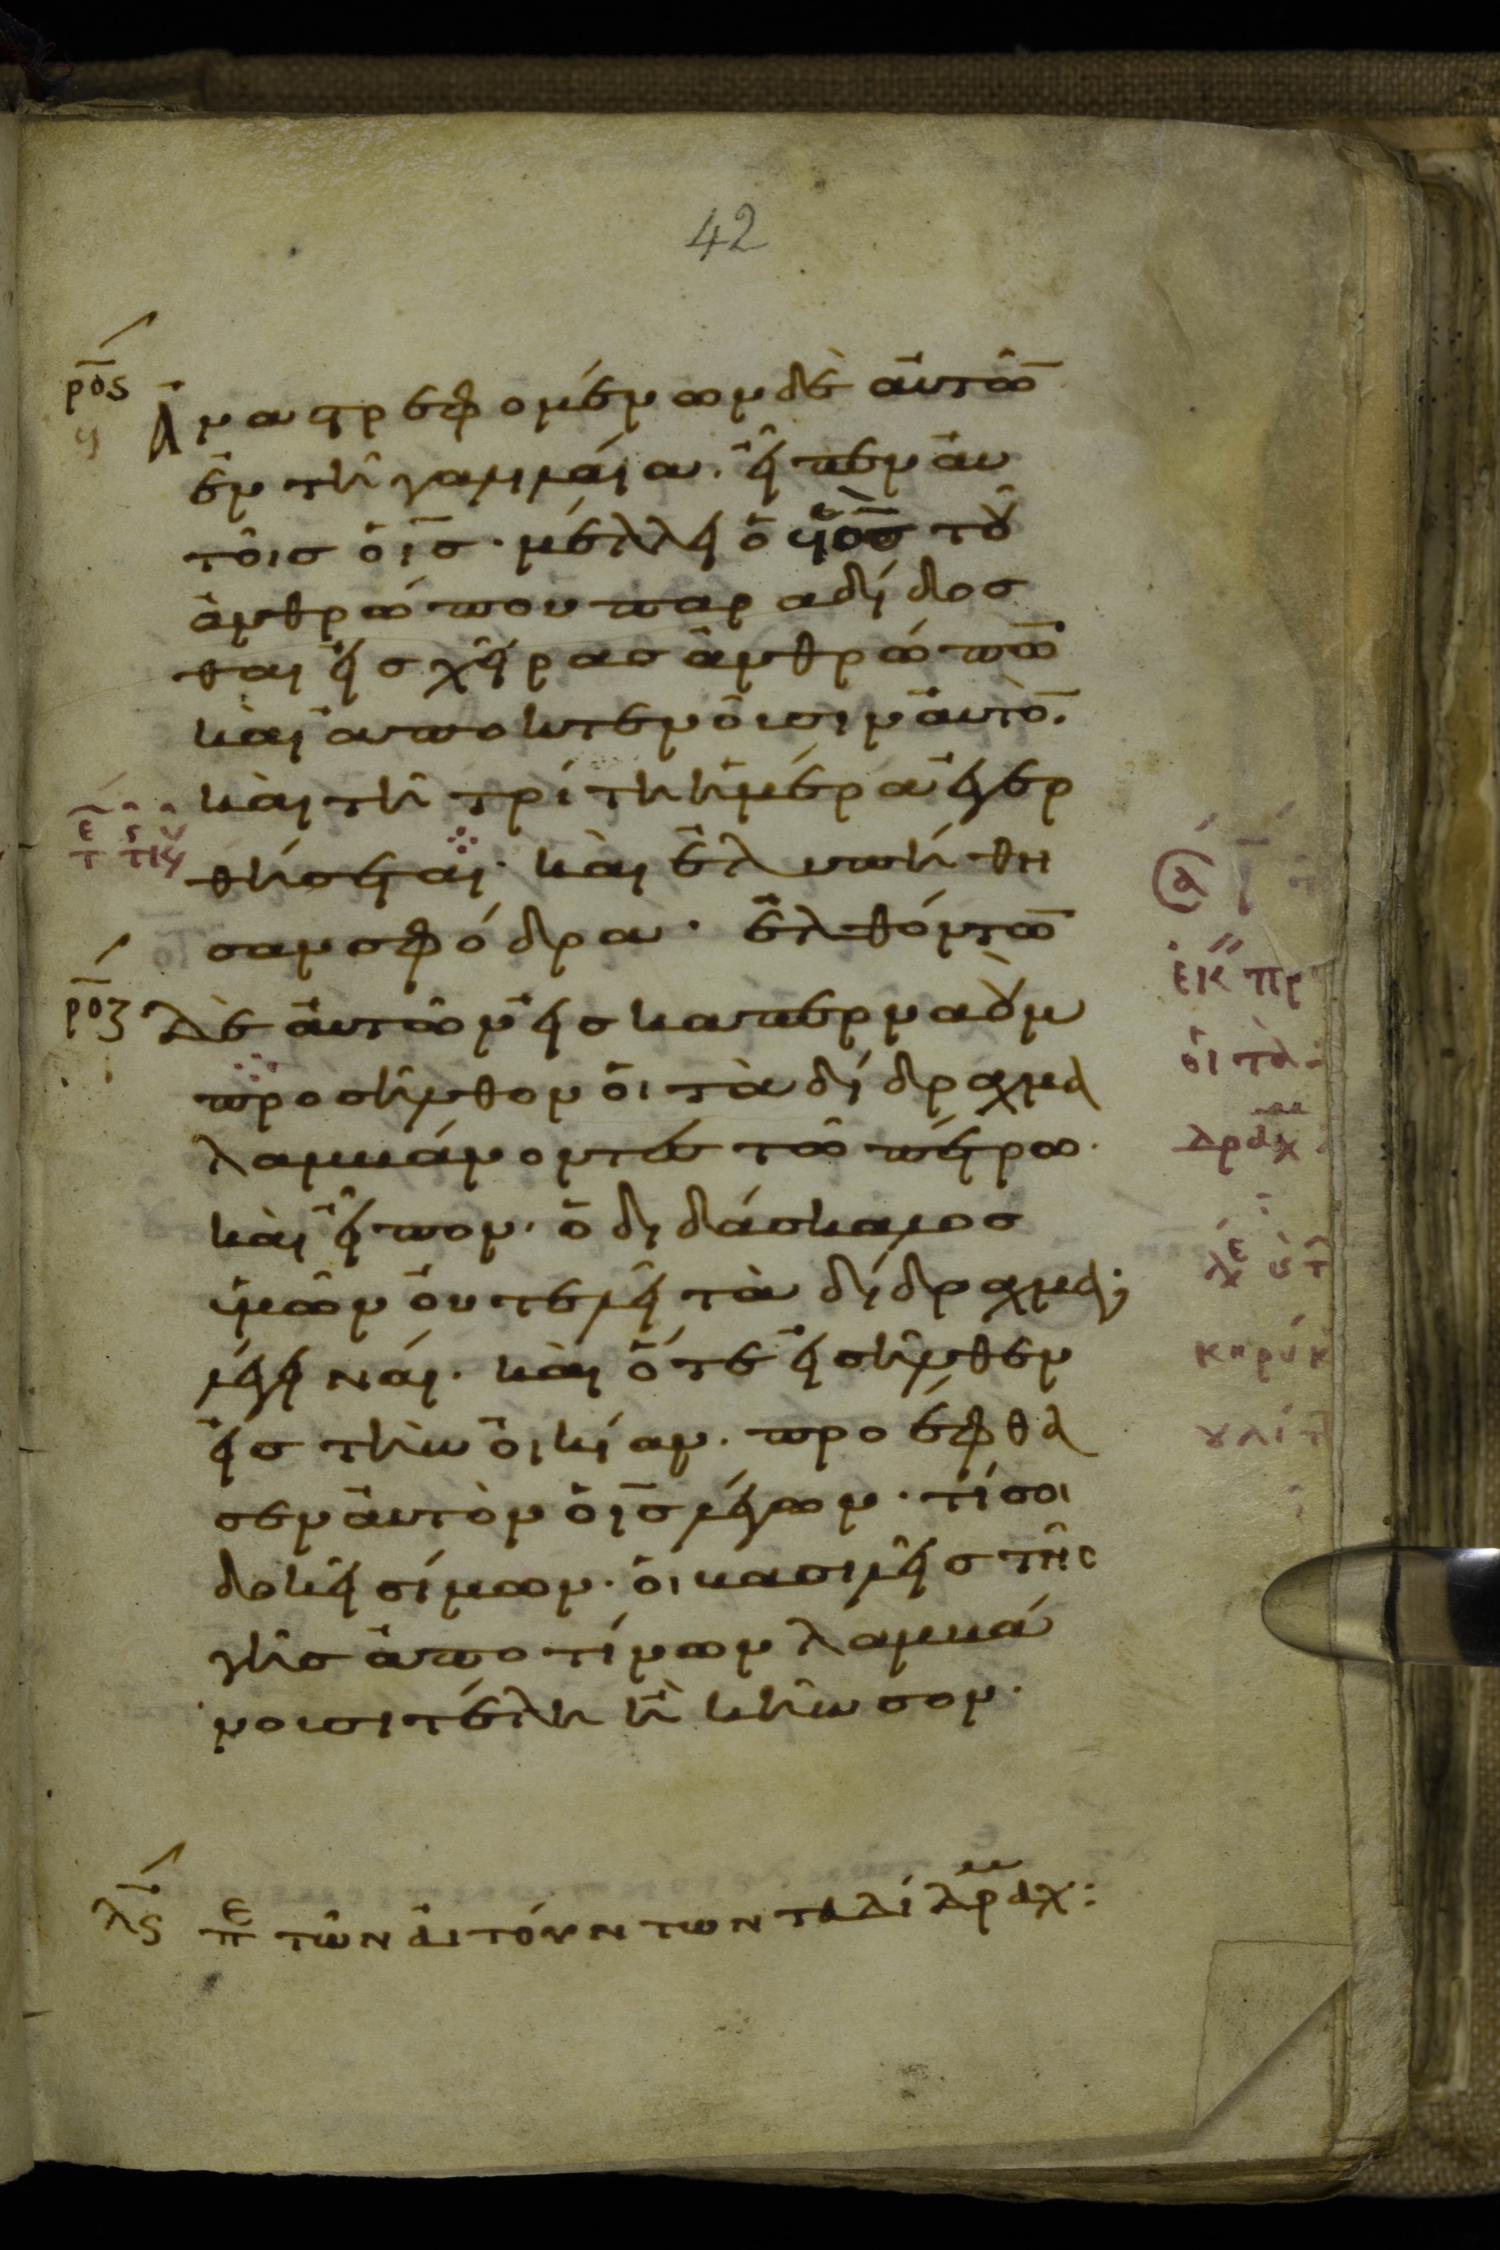 42
ρος
Ἀναστρεφομένων δὲ αὐτῶ
ἐν τῆ γαλιλαία. εἶπεν αὐ
τοῖς ὁ ις· μέλλει ὁ υἱὸς τοῦ
ἀνθρώπου παραδίδοσ
θαι εἰς χεῖρας ἀνθρώπω
καὶ ἀποκτενοῦσιν αὐτὸ.
καὶ τῆ τρίτη ἡμέρα ἐγερ
θήσεται· καὶ ἐλυπήθη
σαν σφόδρα· ἐλθόντω
ροζ
δὲ αὐτῶν εἰς καπερναοὺμ
προσῆλθον οἱ τὰ δίδραχμα
λαμβάνοντες τῶ πέτρω·
καὶ εἶπον· ὁ διδάσκαλος
ὑμῶν οὐ τελεῖ τὰ δίδραχμα;
λέγει ναί· καὶ ὅτε εἰσῆλθεν
εἰς τὴν οἰκίαν. προέφθα
σεν αὐτὸν ὁ ις λέγων· τί σοι
δοκεῖ σίμων· οἱ βασιλεῖς τῆς
γῆς ἀπὸ τίνων λαμβά
νουσι τέλη ἢ κῆνσον·
λς πε τῶν αἰτούντων τα δίδραχμ:
ἐκ πρ
οἱ τὰ
δραχμ
κηρύκ